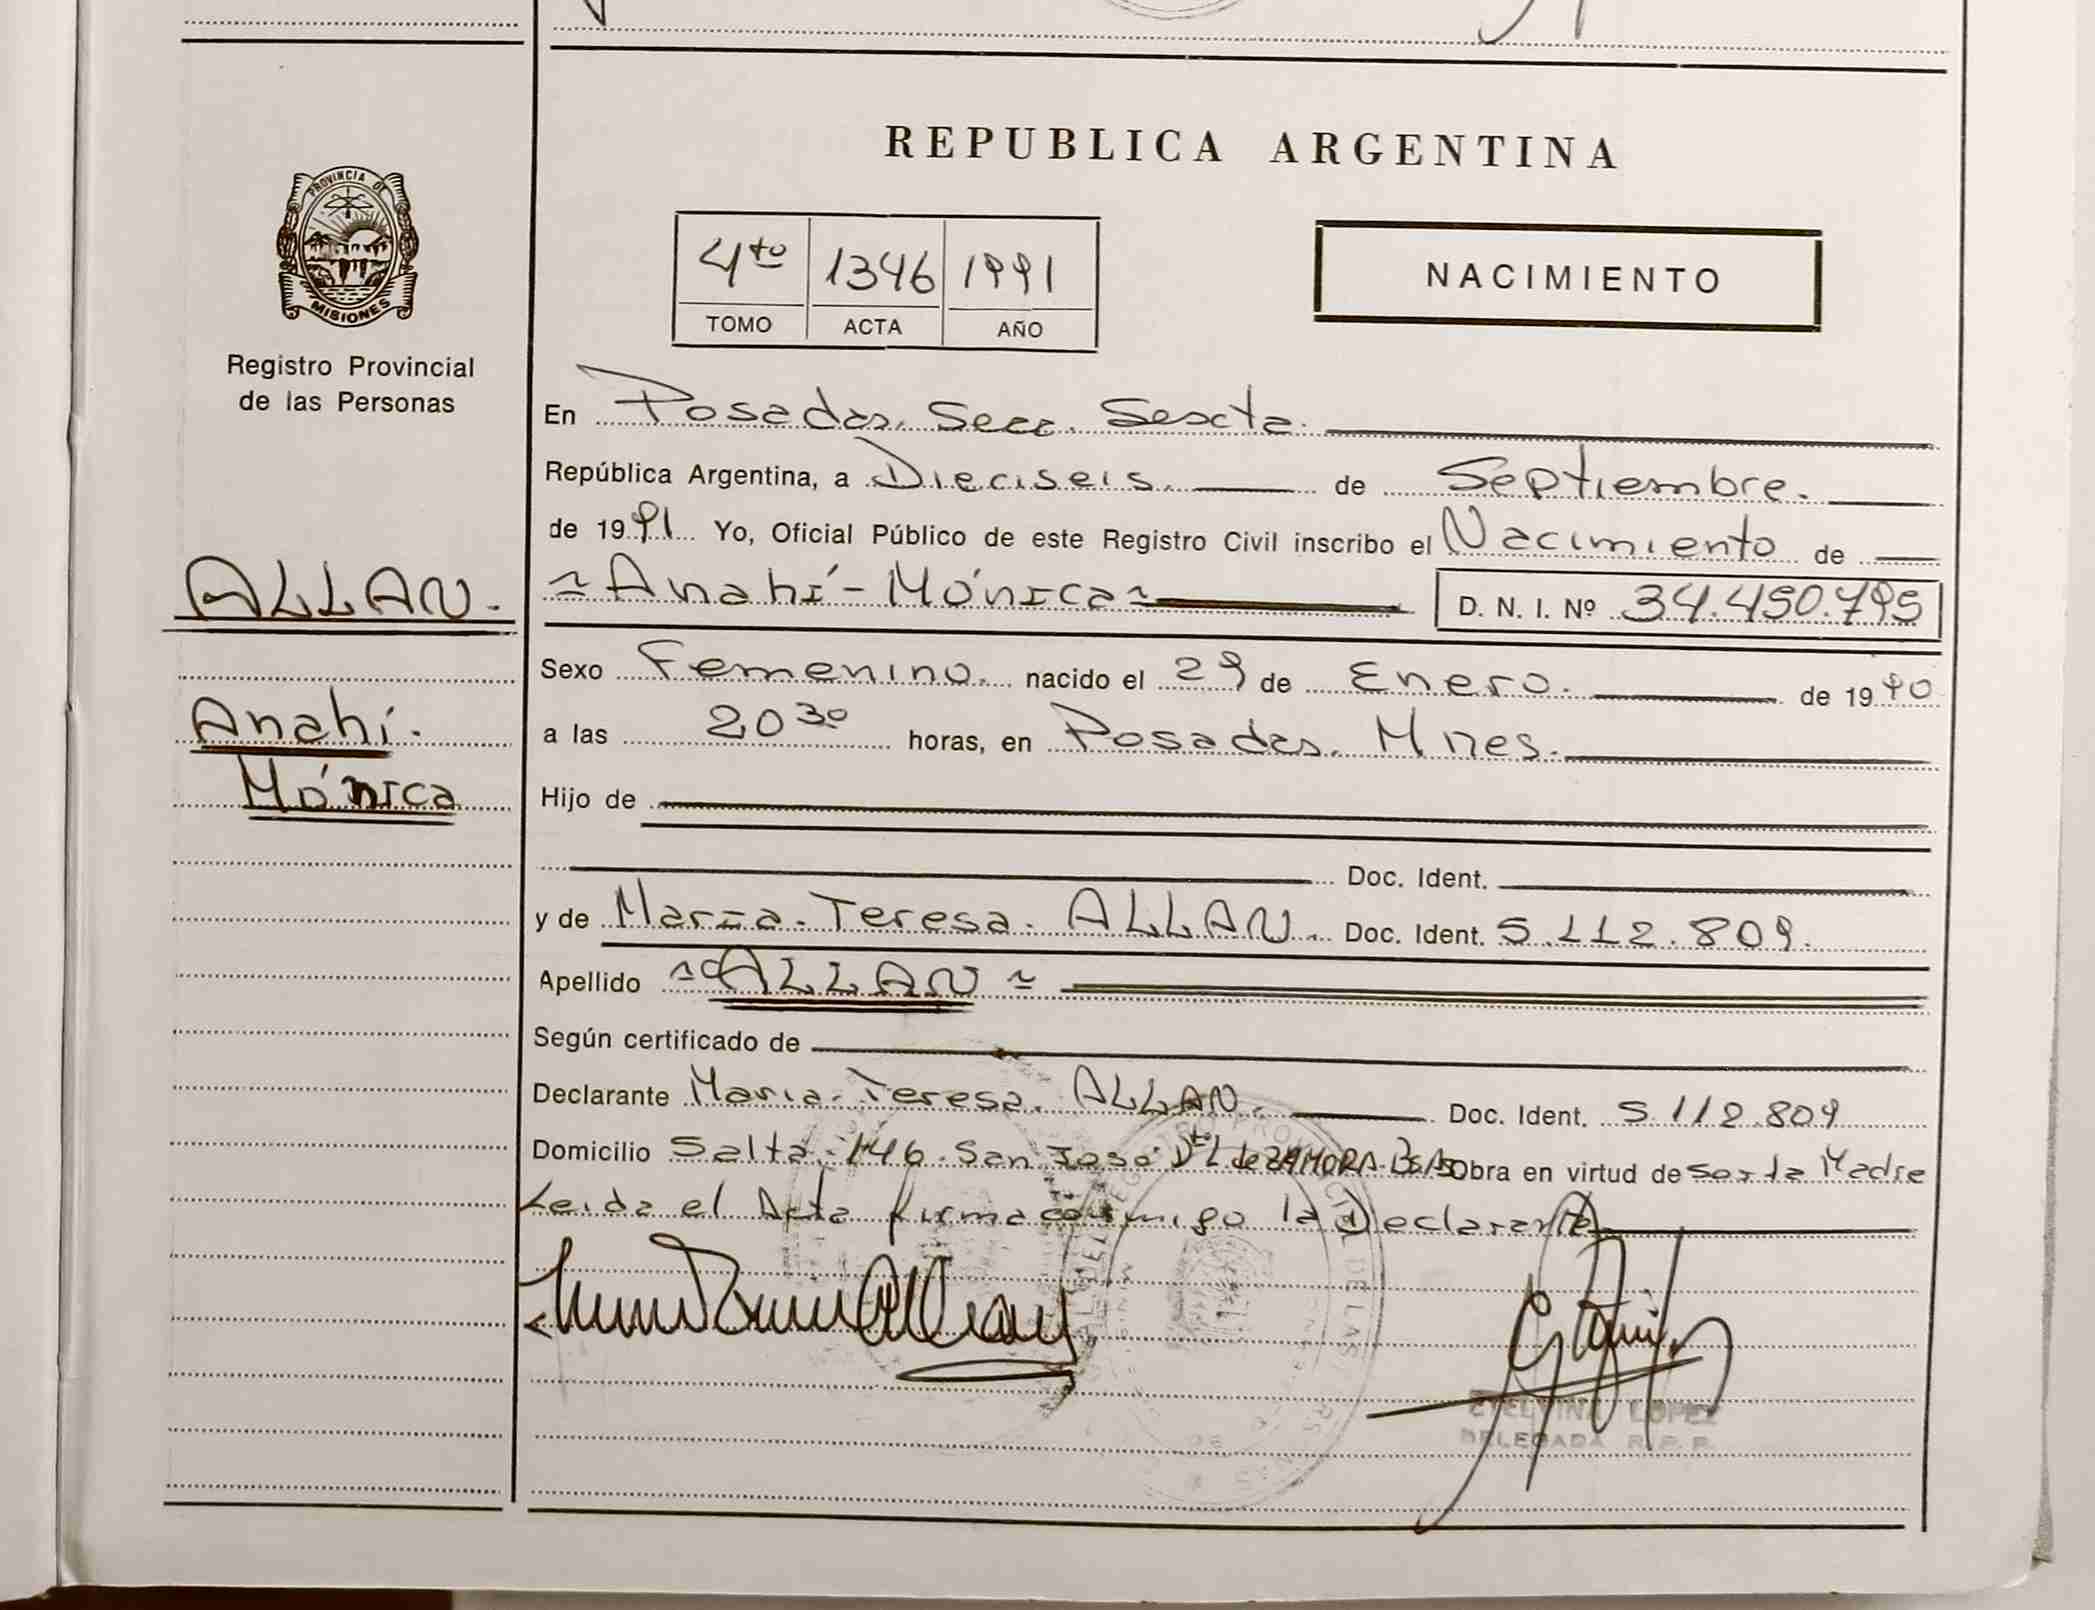 REPUBLICA ARGENTINA
PROVINCIA DE MISIONES
Registro Provincial
de las Personas
4to 1346 1991
TOMO ACTA AÑO
NACIMIENTO
En Posadas. Secc. Sexta.
República Argentina, a Dieciseis. de Septiembre.
de 1991 Yo, Oficial Público de este Registro Civil inscribo el Nacimiento de
ALLAN.
Anahí.
Mónica
~ Anahí - Mónica ~ D. N. I. Nº 34.450.795
Sexo Femenino. nacido el 29 de Enero. de 1990
a las 20 30 horas, en Posadas. Mnes.
Hijo de
Doc. Ident.
y de María - Teresa. ALLAN. Doc. Ident. 5.112.809.
Apellido ~ ALLAN ~
Según certificado de
Declarante María - Teresa. ALLAN. Doc. Ident. 5.112.809
Domicilio Salta. 146. San José Dto L. de ZAMORA. Bs.As Obra en virtud de ser la Madre
Leida el Acta firma conmigo la Declarante
REGISTRO PROVINCIAL DE LAS PERSONAS
ETELVINA LOPEZ
DELEGADA R. P. P.